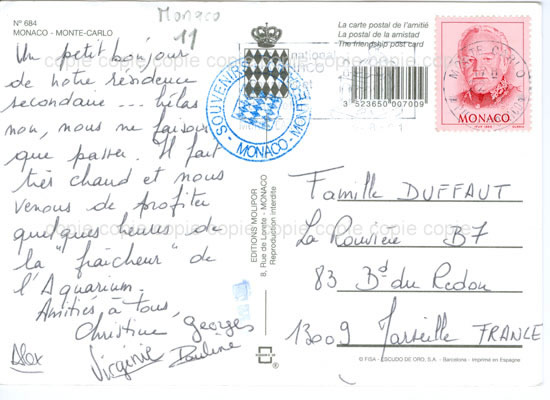 Monaco
11
N° 684
MONACO - MONTE-CARLO
La carte postal de l'amitié
La postal de la amistad
The friendship post card
3 523650 007009
MONACO
SOUVENIR
MONACO - MONTE
Un petit bonjour
de notre résidence
secondaire ... hélas
non, nous ne faisons
que passer. Il fait
très chaud et nous
venons de profiter
quelques heures de
la "fraîcheur" de
l'Aquarium.
Amitiés à tous,
Christine Georges
Virginie Pauline
Alex
EDITIONS MOLIPOR
8, Rue de Lorete - MONACO
Reproduction interdite
Famille DUFFAUT
La Rouvière B7
83 Bd du Redon
13009 Marseille FRANCE
© FISA - ESCUDO DE ORO, S.A. - Barcelona - Imprimé en Espagne
copie copie copie copie copie copie